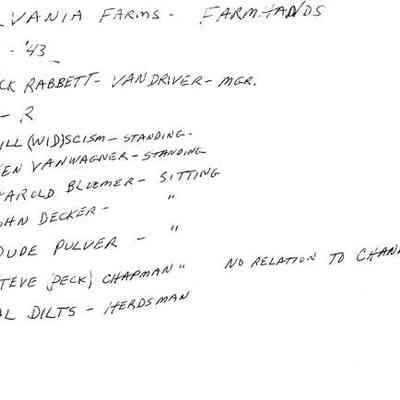 LVANIA FARMS - FARMHANDS
- '43
CK RABBETT - VANDRIVER - MGR.
- R
ILL (WID) SCISM - STANDING -
EN VANWAGNER - STANDING
HAROLD BLOEMER - SITTING
OHN DECKER - "
DUDE PULVER - "
STEVE (PECK) CHAPMAN " NO RELATION TO CHAN
AL DILTS - HERDSMAN